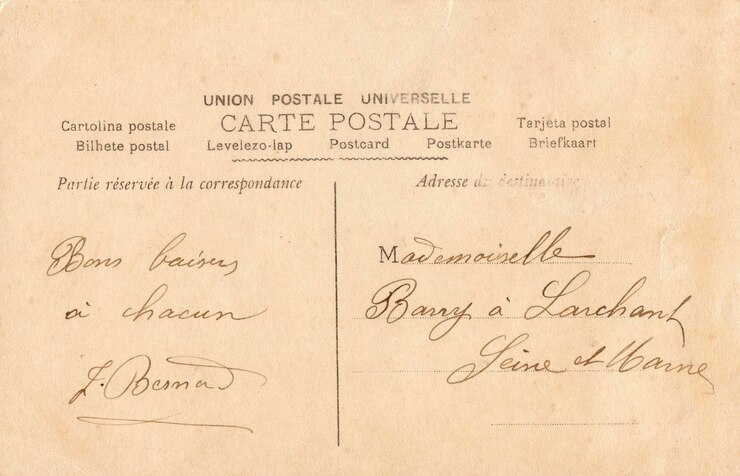 UNION POSTALE UNIVERSELLE
CARTE POSTALE
Cartolina postale
Tarjeta postal
Bilhete postal
Levelezo-lap
Postcard
Postkarte
Briefkaart
Partie réservée à la correspondance
Bons baisers
à chacun
J. Besnard
Adresse du destinataire
Mademoiselle
Barry à Larchant
Seine et Marne